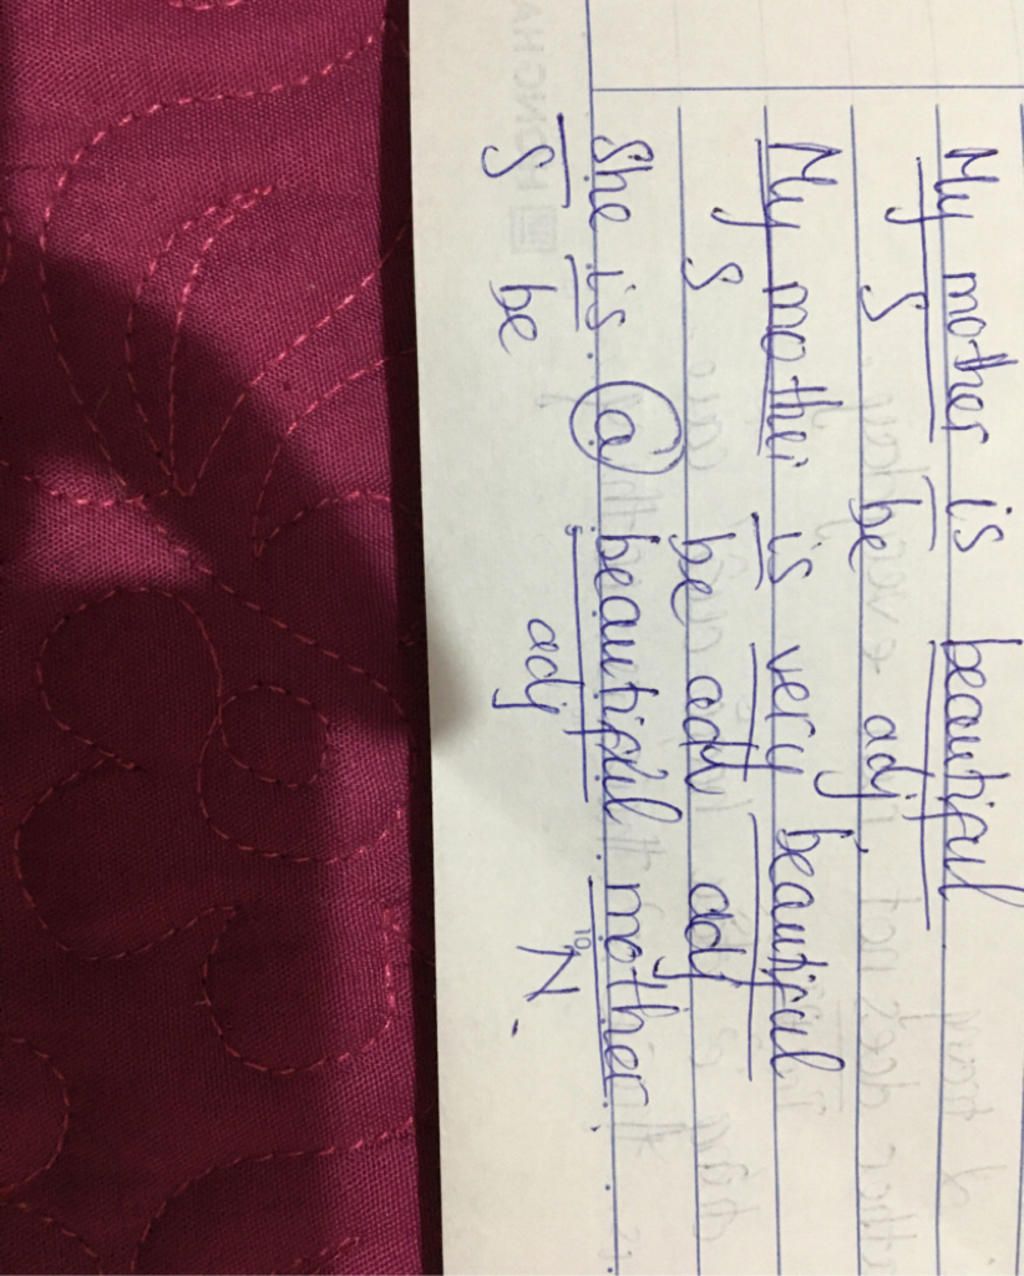 My mother is beautiful
S be adj
My mother is very beautiful
S be adv adj
She is a beautiful mother
S be adj N
10
HONGHA